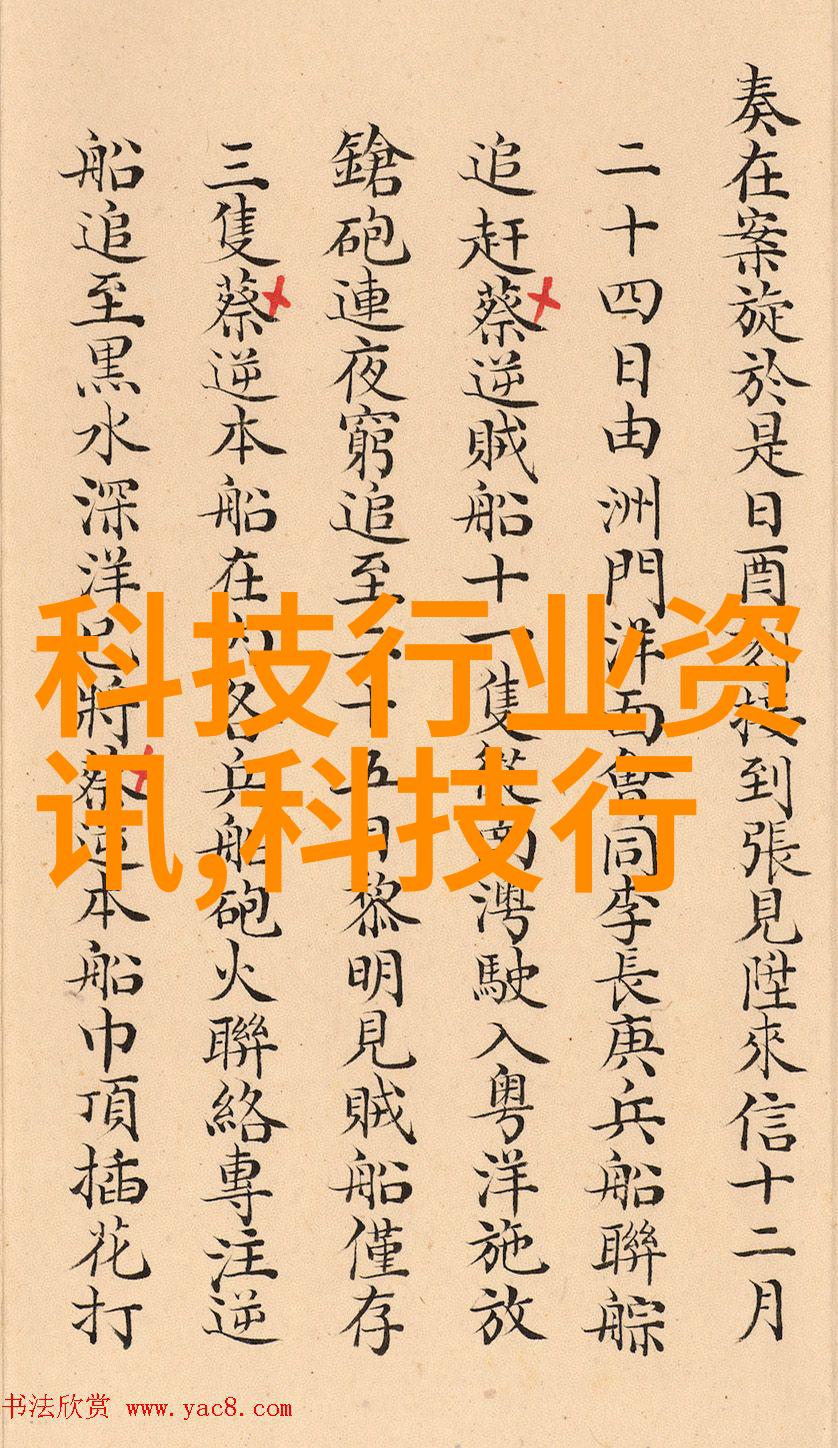 奏在案旋於是日酉刻接到張見陞來信十二月
二十四日由洲門洋面會同李長庚兵船聯䑸
追赶蔡逆賊船十一隻從南灣駛入粤洋施放
鎗砲連夜窮追至二十五日黎明見賊船僅存
三隻蔡逆本船在內各兵船砲火聯絡專注逆
船追至黒水深洋已將蔡逆本船巾頂插花打
科技行业资
讯,科技行
书法欣赏 www.yac8.com